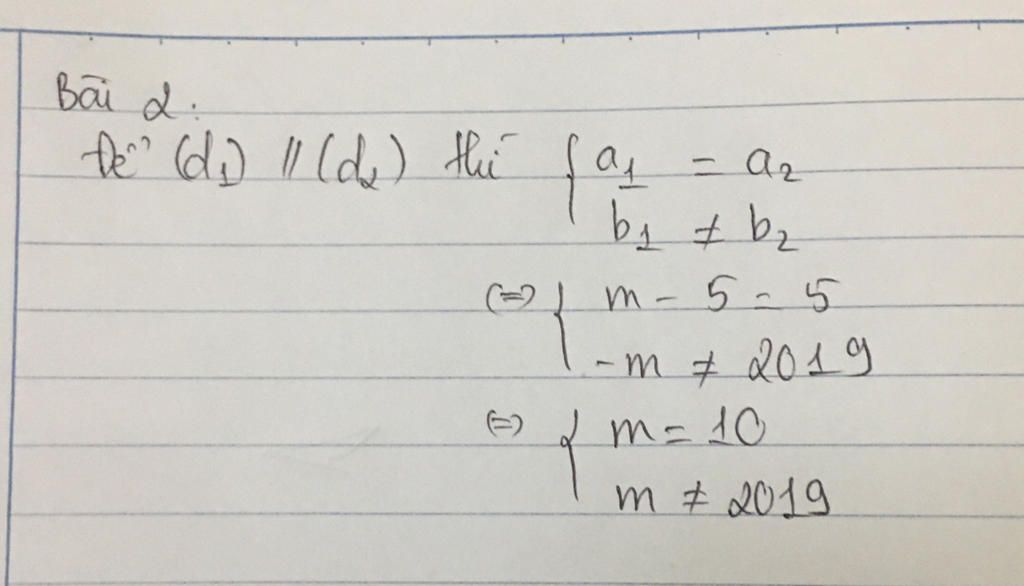 Bài 2:
Để (d1) // (d2) thì { a1 = a2
b1 ≠ b2
(=) { m - 5 = 5
-m ≠ 2019
(=) { m = 10
m ≠ 2019